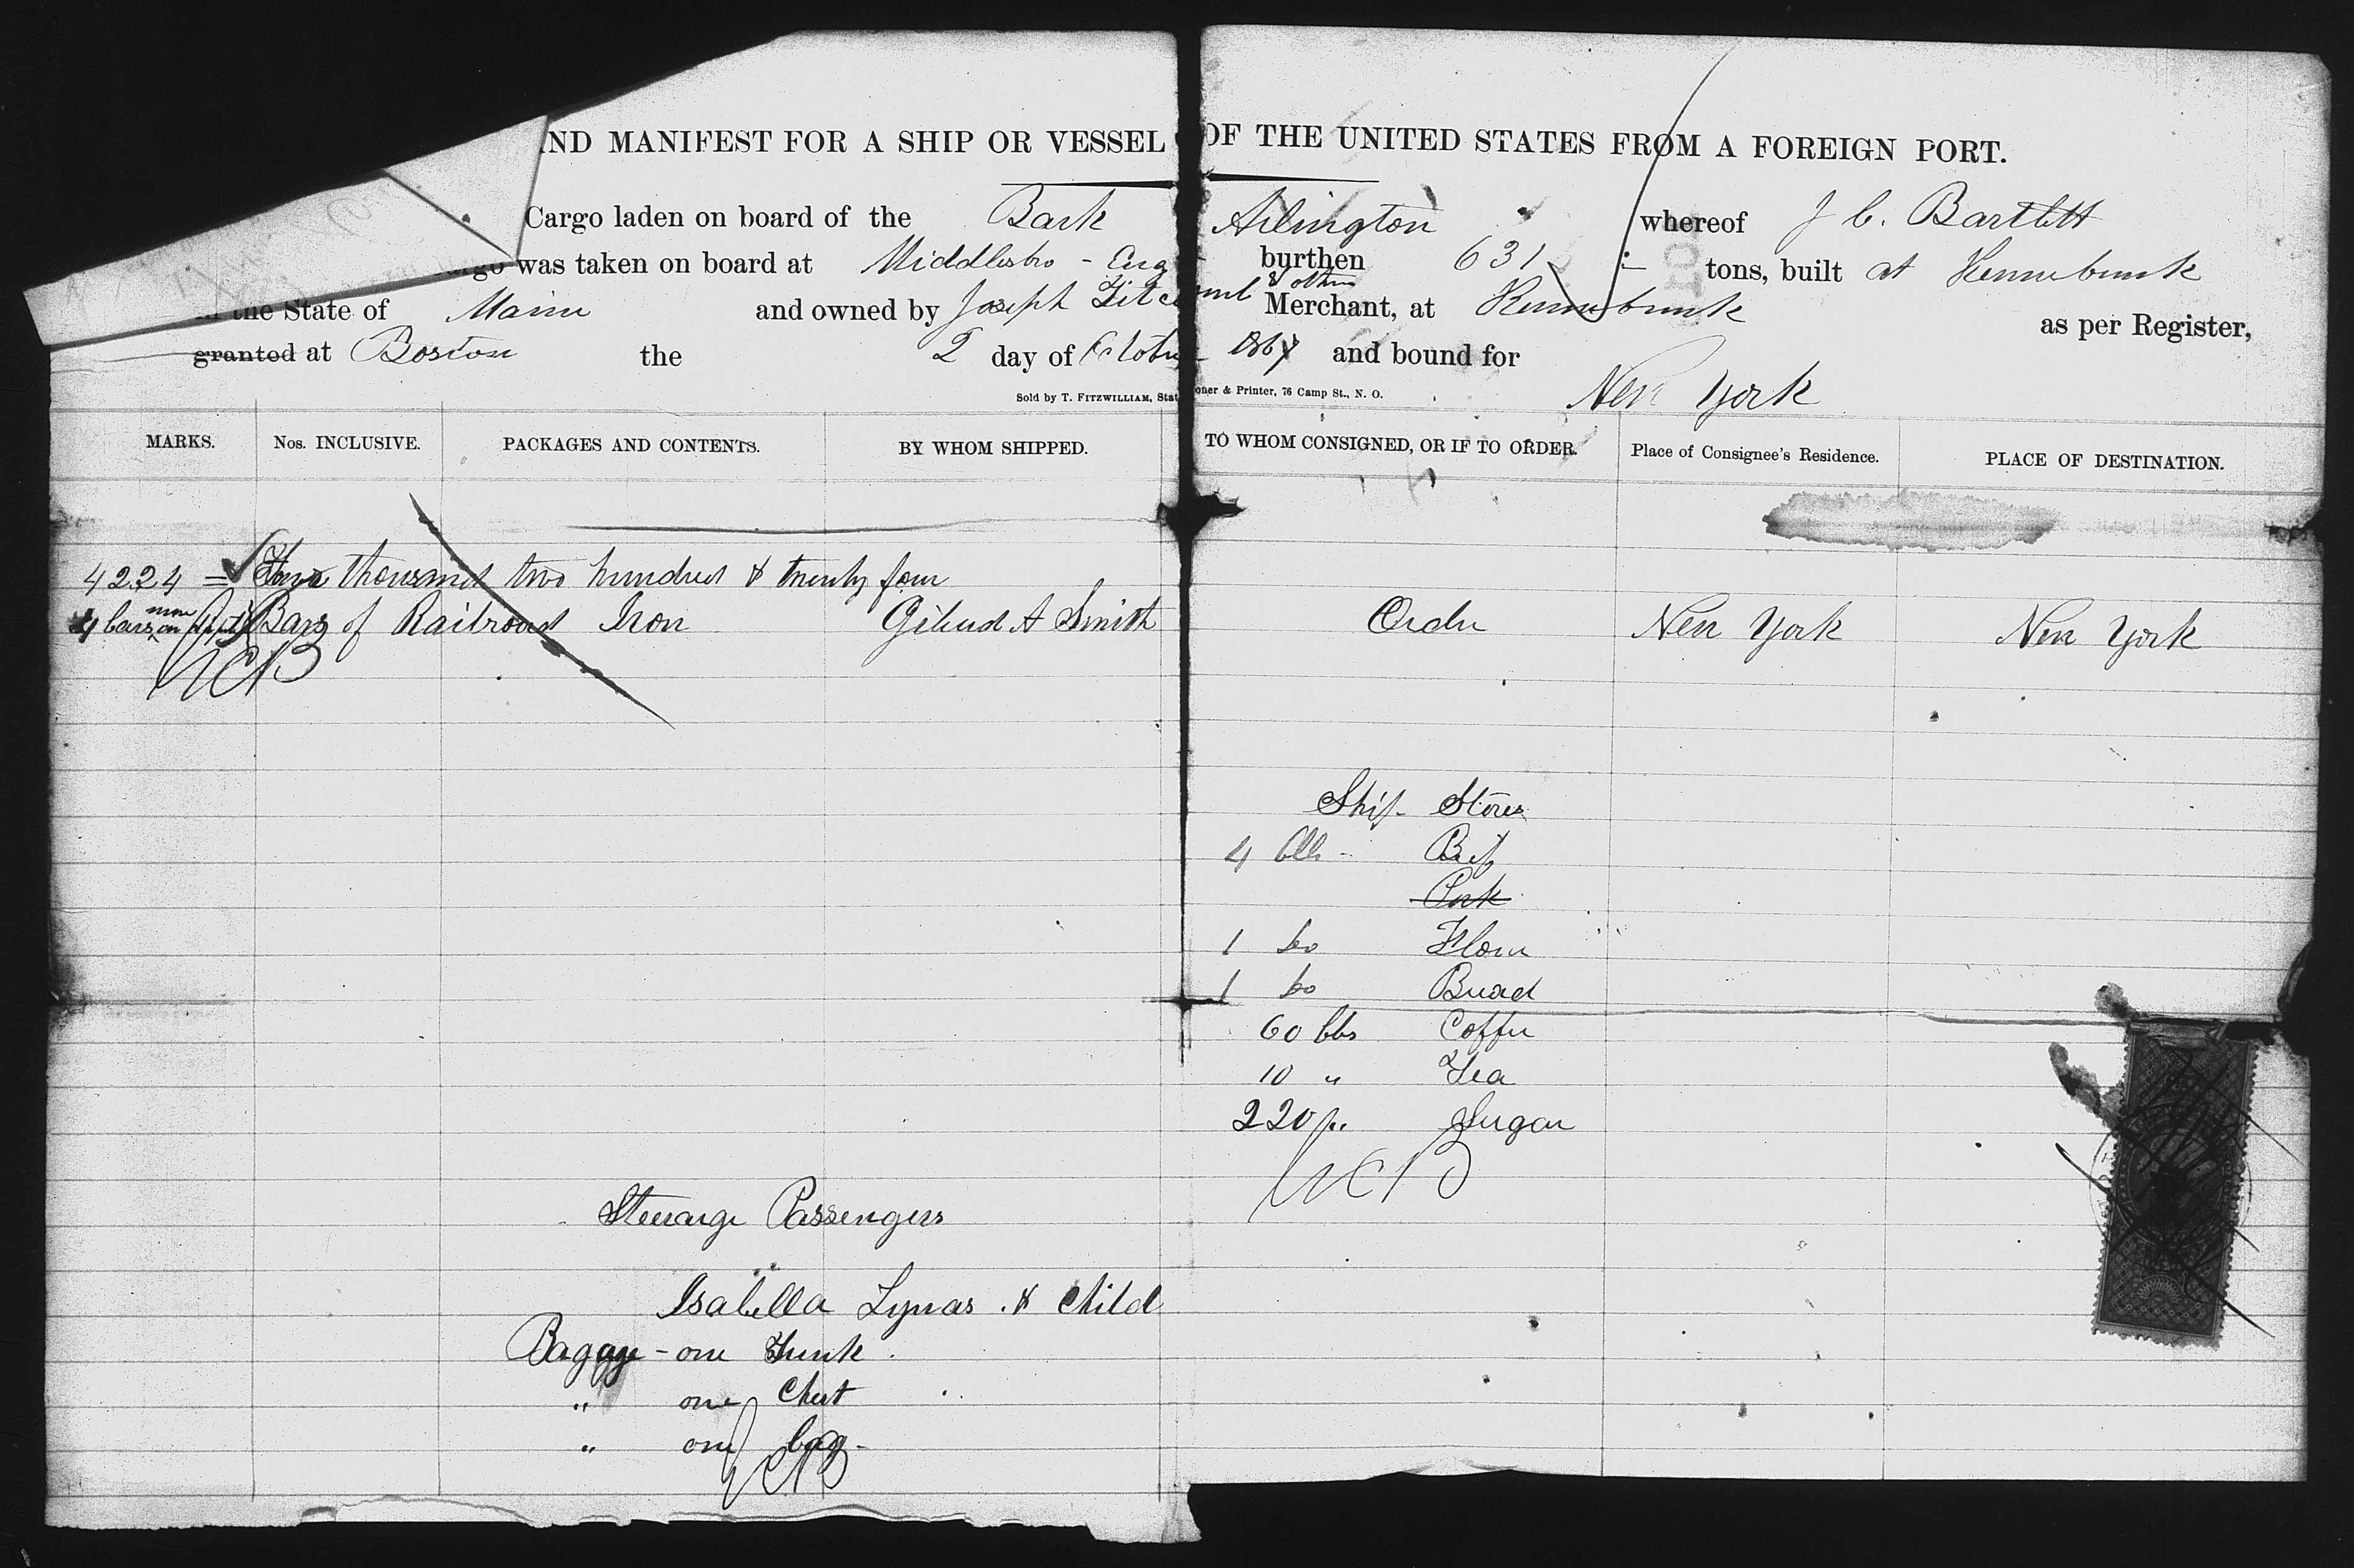 AND MANIFEST FOR A SHIP OR VESSEL OF THE UNITED STATES FROM A FOREIGN PORT.
Cargo laden on board of the Bark Arlington whereof J C. Bartlett
was taken on board at Middlesbro - Eng burthen 631 tons, built at Kennebunk
in the State of Maine and owned by Joseph Titcomb & others Merchant, at Kennebunk
as per Register,
granted at Boston the 2 day of October 1867 and bound for
New York
Sold by T. FITZWILLIAM, Stationer & Printer, 76 Camp St., N. O.
MARKS. Nos. INCLUSIVE. PACKAGES AND CONTENTS. BY WHOM SHIPPED. TO WHOM CONSIGNED, OR IF TO ORDER. Place of Consignee's Residence. PLACE OF DESTINATION.
4224 = Four thousand two hundred & twenty four
4 bars more on Bars of Railroad Iron Gilead A Smith Order New York New York
JCB
Ship Stores
4 bbls - Beef
Pork
1 do Flour
1 do Bread
60 lbs Coffee
10 " Tea
220 Sugar
JCB
Steerage Passengers
Isabella Lynas & Child
Baggage - one Trunk.
" one Chest
" one bag -
JCB